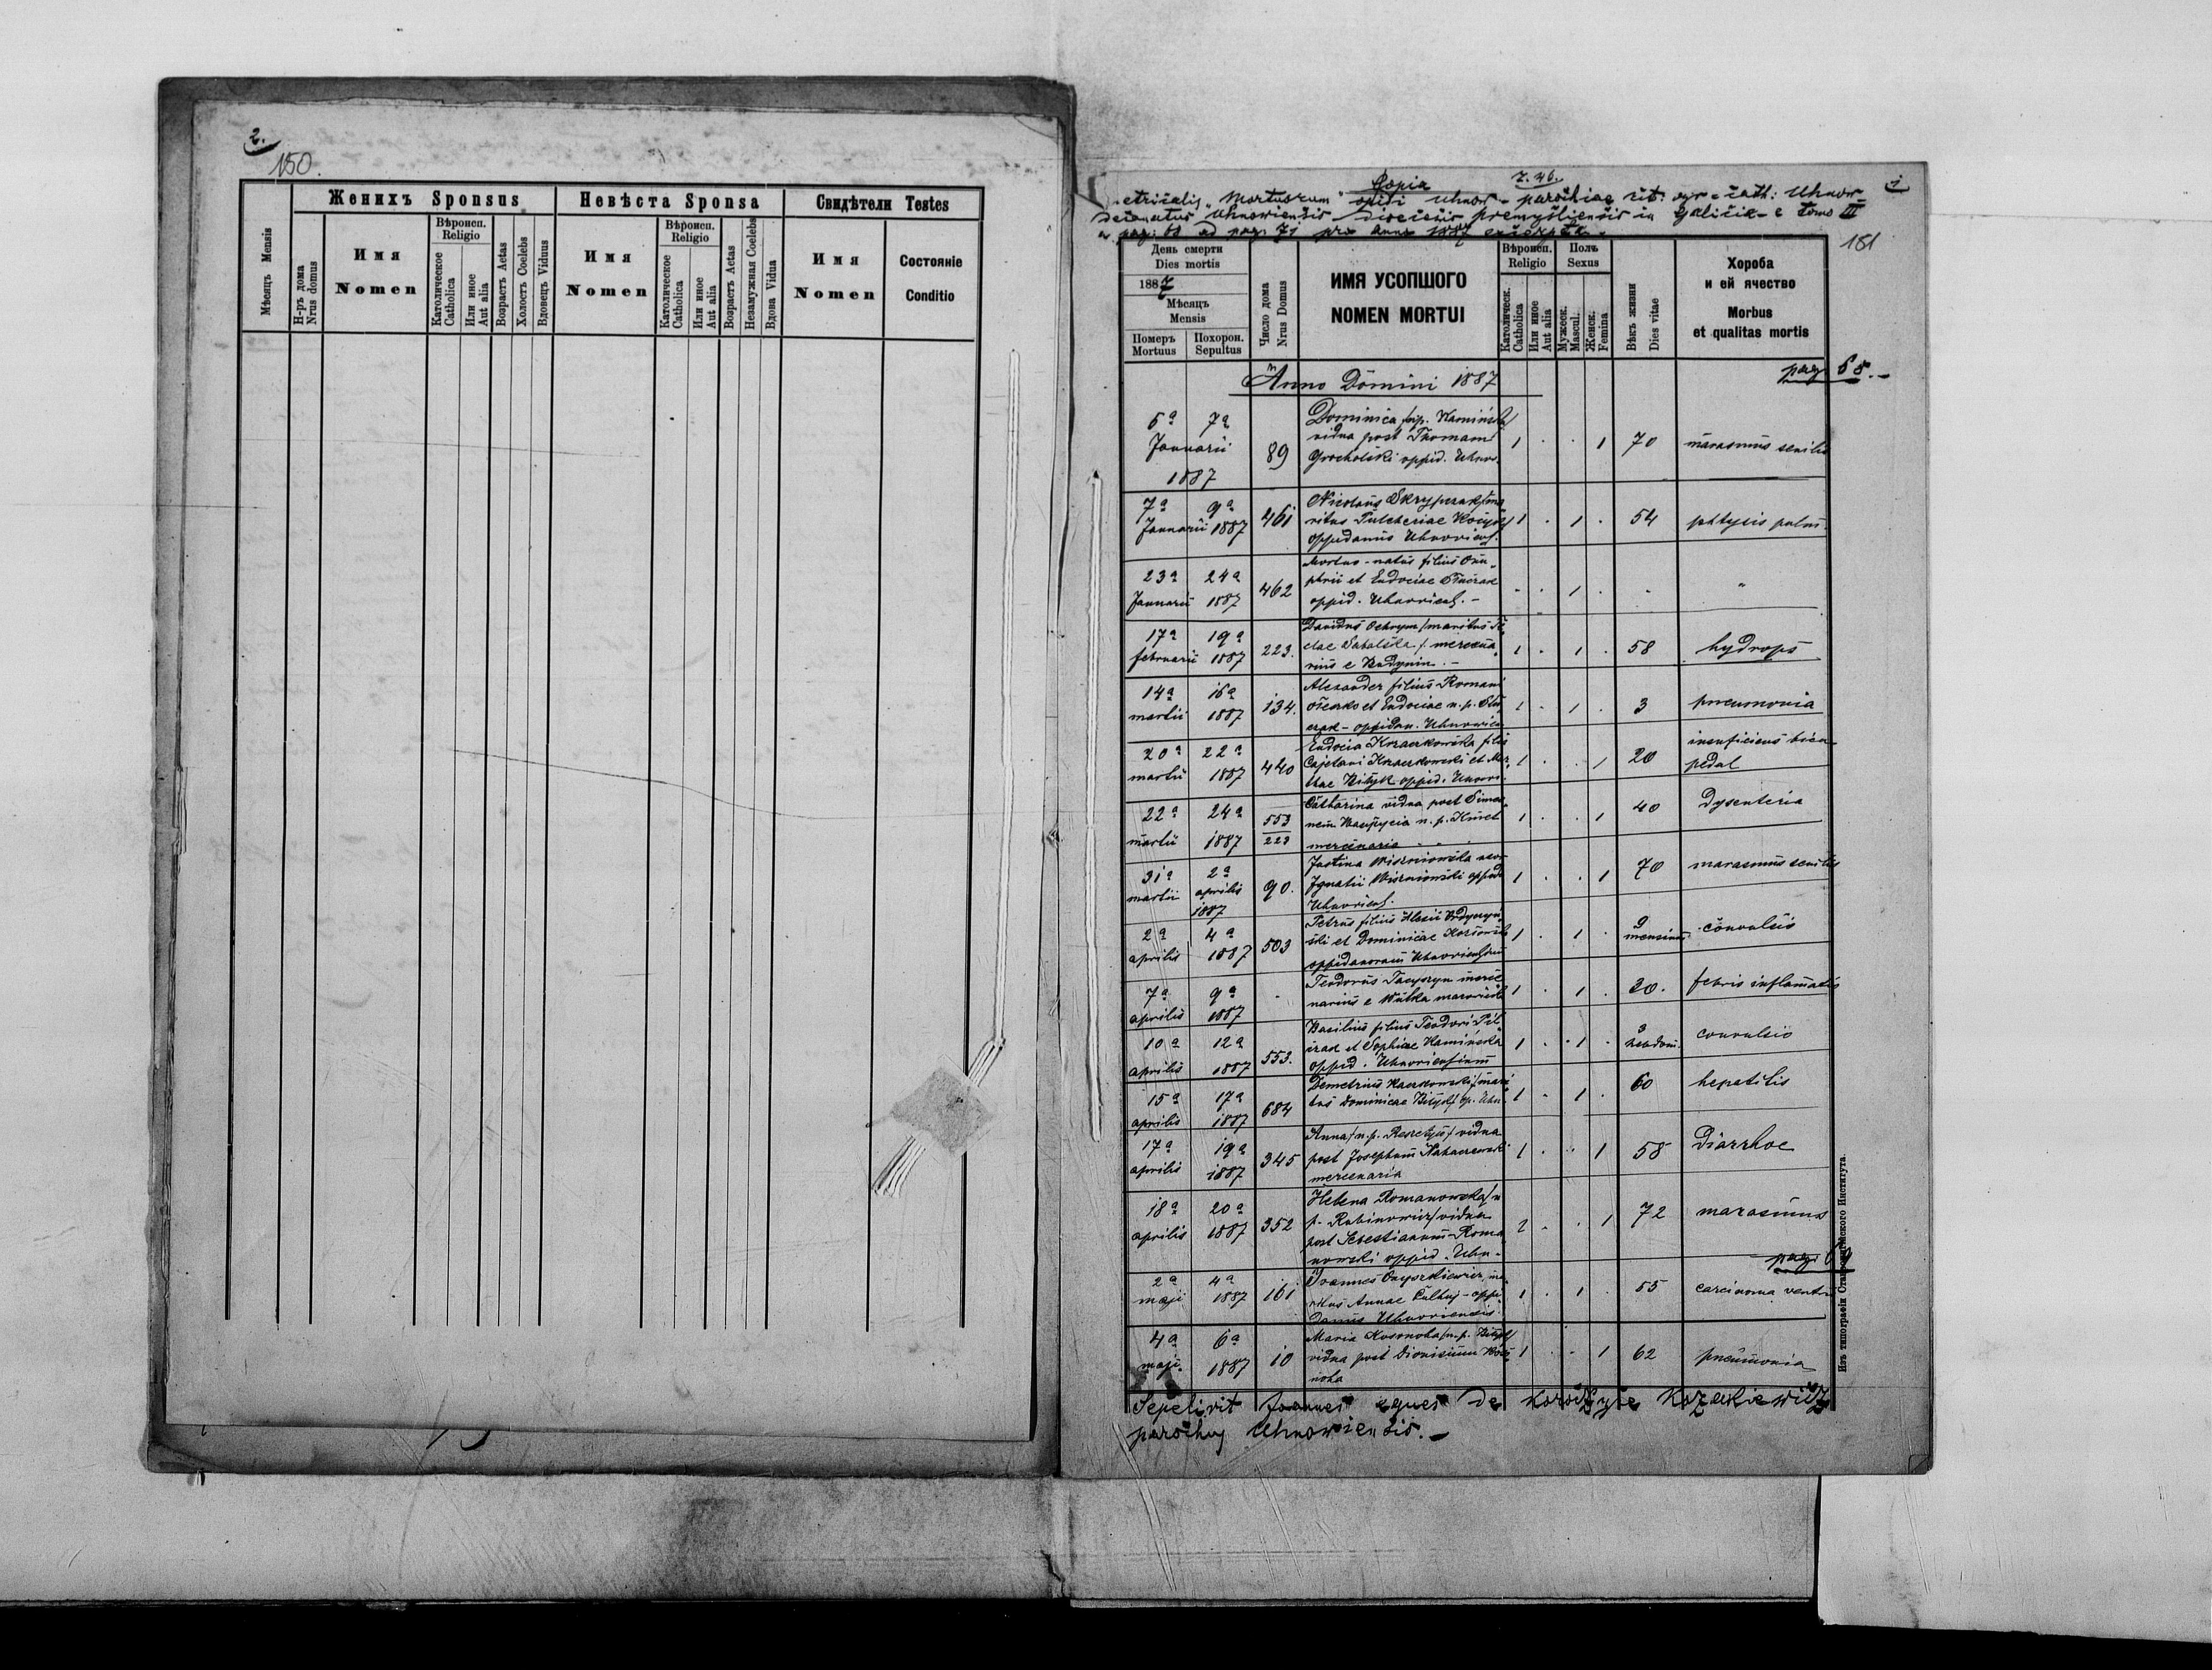 2.
150.
Женихъ Sponsus
Невѣста Sponsa
Свидѣтели Testes
Мѣсяцъ Mensis
Н-ръ дома Nrus domus
Имя
Nomen
Вѣроисп.
Religio
Католическое Catholica
Или иное Aut alia
Возрастъ Aetas
Холостъ Coelebs
Вдовецъ Viduus
Имя
Nomen
Вѣроисп.
Religio
Католическое Catholica
Или иное Aut alia
Возрастъ Aetas
Незамужная Coelebs
Вдова Vidua
Имя
Nomen
Состояніе
Conditio
Copia
1
etricalis "Mortuorum" opidi Uhnow - parochiae rit. gr. cath. Uhnow
Decanatus Uhnowiensis Dioecesis premysliensis in Galicia e tomo III
a pag: 68 ad pag. 71 pro anno 1887
181
День смерти
Dies mortis
1887
Мѣсяцъ
Mensis
Померъ
Mortuus
Похорон.
Sepultus
Число дома
Nrus Domus
ИМЯ УСОПШОГО
NOMEN MORTUI
Вѣроисп.
Religio
Католическ.
Catholica
Или иное
Aut alia
Полъ
Sexus
Мужеск.
Mascul.
Женск.
Femina
Вѣкъ жизни
Dies vitae
Хороба
и ей ячество
Morbus
et qualitas mortis
Anno Domini 1887
pag 68.-
5a 7a Januarii 1887 89
Dominica Kamińska
vidua post Thomam
Grocholski oppid. Uhnov.
1 . . 1 70 marasmus senilis
7a 9a Januarii 1887 461
Nicolaus Skrypczak ma
ritus Pulcheriae
oppidanus Uhnoviens.
1 . 1 . 54 phtysis pulm.
23a 24a Januarii 1887 462
Mortuo-natus filius Onu
phrii et Eudociae
oppid. Uhnoviens. -
. . 1 . . "
17a 19a februarii 1887 223.
Davidus Ochrym / maritus
mercena
rius e Budynin. -
1 . 1 . 58 hydrops
14a 16a martii 1887 134.
Alexander filius Romani
et Eudociae n. p.
oppidan. Uhnowien
1 . 1 . 3 pneumonia
20a 22a martii 1887 440
Eudocia Kraczkowska filia
Cajetani Kraczkowski et Mar
thae oppid. Uhnovi.
1 . . 1 20
22a 24a martii 1887 553 223
Catharina vidua post Simeo
nem n. p. Kmet
mercenaria
1 . . 1 40 Dysenteria
31a 2a martii aprilis 1887 90.
Justina Wiszniowska uxor
Ignatii Wiszniowski oppid.
Uhnoviens.
1 . . 1 70 marasmus senilis
2a 4a aprilis 1887 503
Petrus filius Alexii
ski et Dominicae
oppidanorum Uhnoviensium
1 . 1 . 9 mensium convulsis
7a 9a aprilis 1887 .
Teodorus merce
narius e Wulka mazowiecka
1 . 1 . 20. febris inflamatis
10a 12a aprilis 1887 553.
Basilius filius Teodori
et Sophiae Kamińska
oppid. Uhnoviensium
1 . 1 . 3 hebdom. convulsio
15a 17a aprilis 1887 684
Demetrius Kaczkowski / mari
tus Dominicae op. Uhn.
1 . 1 . 60 hepatitis
17a 19a aprilis 1887 345
Anna / n. p. vidua
post Josephum
mercenaria
1 . . 1 58 Diarrhoe
18a 20a aprilis 1887 352
Helena Romanowska / n
p. Rabinowicz / vidua
post Sebestianum Roma
nowski oppid. Uhn -
1 72 marasmus
pag:
2a 4a maji 1887 161
Joannes Onyszkiewicz ma
ritus Annae oppi
danus Uhnoviensis
1 . 1 . 55 carcinoma ventri
4a 6a maji 1887 10
Maria n. p.
vidua post Dionisium
1 . . 1 62 pneumonia
Sepelivit Joannes eques de Kozakiewicz
parochus Uhnowiensis. -
Изъ типографіи Ставропигійского Института